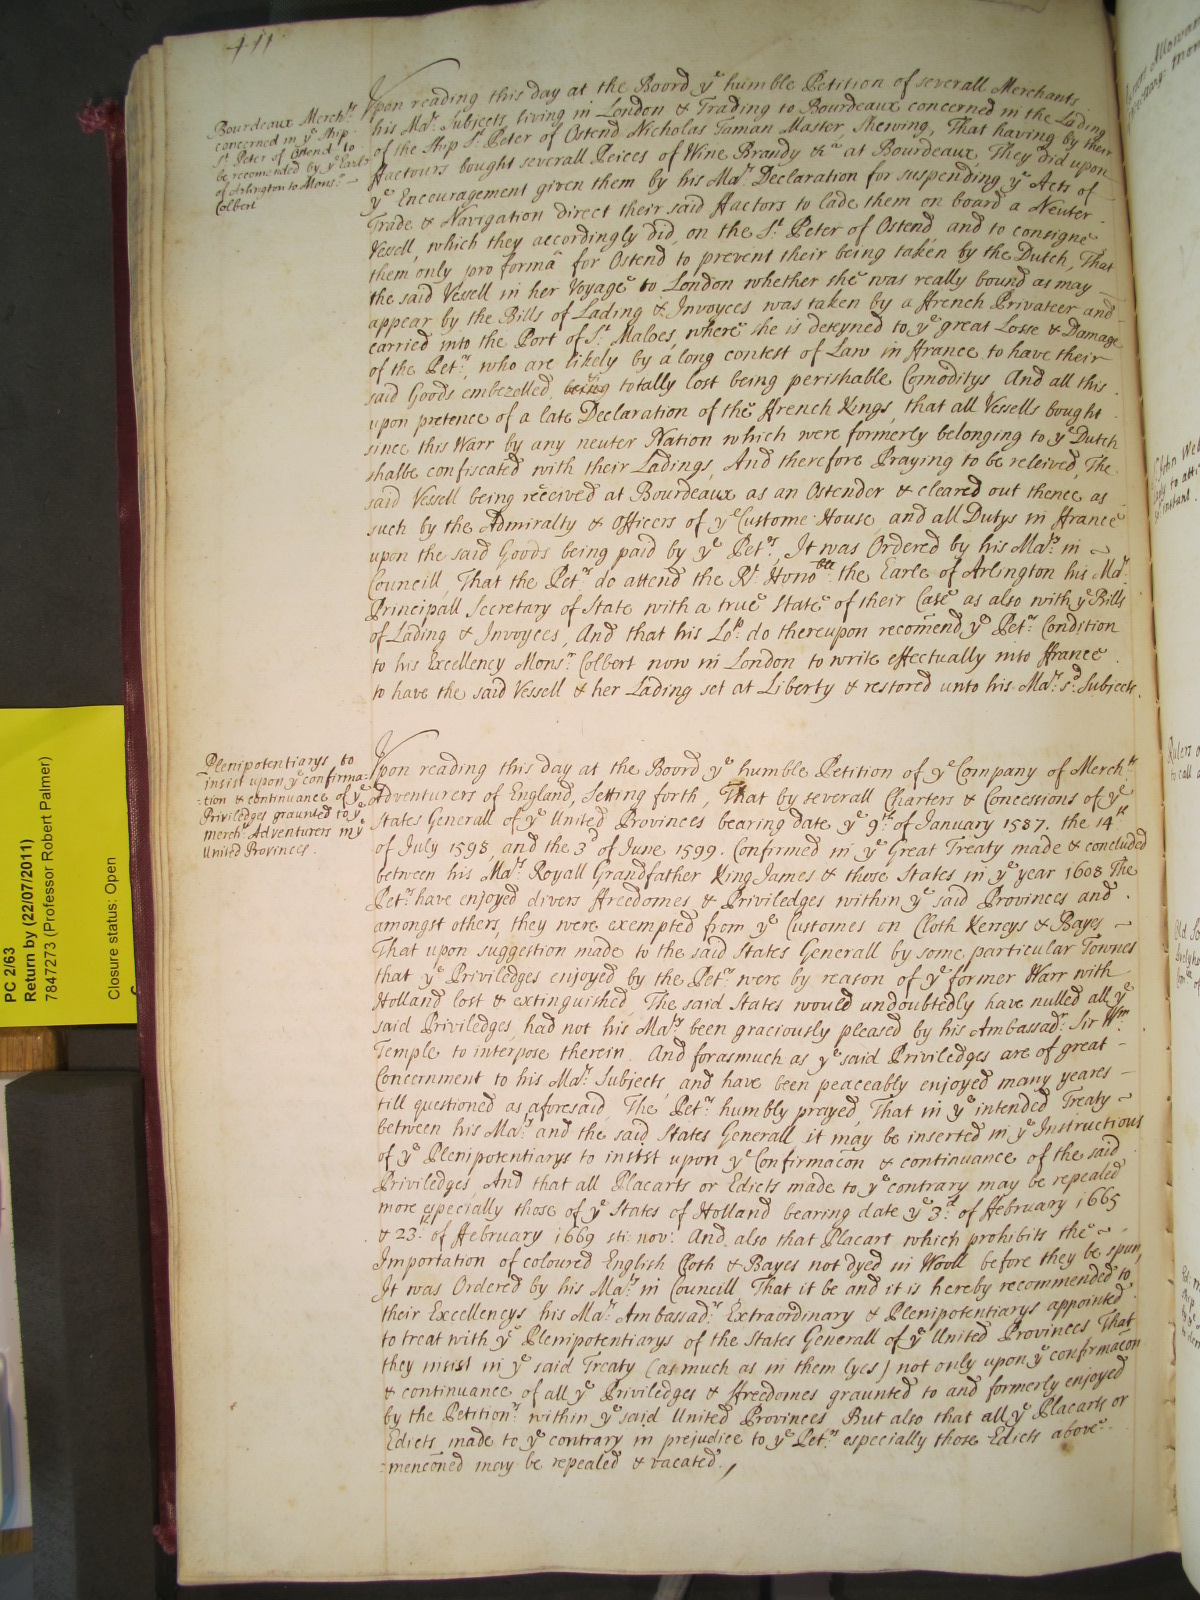 411
Bourdeaux Mercħts
concerned in ye Ship
St. Peter of Ostend to
be recomended by ye Earle
of Arlington to Monsr.
Colbert
Upon reading this day at the Boord ye humble Petition of severall Merchants
his Mats. Subjects living in London & Trading to Bourdeaux concerned in the Lading
of the Ship St. Peter of Ostend Nicholas Taman Master, Shewing, That having by their
Factours bought severall Peices of Wine Brandy &ca at Bourdeaux, They did upon
ye Encouragement given them by his Mats. Declaration for suspending ye Acts of
Trade & Navigation direct their said Factors to lade them on board a Neuter
Vessell, which they accordingly did, on the St. Peter of Ostend and to consigne
them only pro forma for Ostend to prevent their being taken by the Dutch, That
the said Vessell in her Voyage to London whether she was really bound as may
appear by the Bills of Lading & Invoyces was taken by a ffrench Privateer and
carried into the Port of St. Maloes, where she is deteyned to ye great Losse & Damage
of the Petrs. who are likely by a long contest of Law in ffrance to have their
said Goods embezelled, totally lost being perishable Comoditys And all this
upon pretence of a late Declaration of the ffrench Kings, that all Vessells bought
since this Warr by any neuter Nation which were formerly belonging to ye Dutch
shalbe confiscated with their Ladings, And therefore Praying to be releived, The
said Vessell being received at Bourdeaux as an Ostender & cleared out thence as
such by the Admiralty & Officers of ye Custome House, and all Dutys in ffrance
upon the said Goods being paid by ye Petrs, It was Ordered by his Maty. in
Councill, That the Petrs do attend the Rt. Honoble. the Earle of Arlington his Mats.
Principall Secretary of State with a true State of their Case as also with ye Bills
of Lading & Invoyces, And that his Lopp. do thereupon recom̄end ye Petrs. Condition
to his Excellency Monsr. Colbert now in London to write effectually into ffrance
to have the said Vessell & her Lading set at Liberty & restored unto his Mats. sd. Subjects.
Plenipotentiarys to
insist upon ye confirma:
:tion & continuance of ye
Priviledges graunted to ye
mercħts Adventurers in ye
United Provinces.
Upon reading this day at the Boord ye humble Petition of ye Company of Mercħts
Adventurers of England, Setting forth, That by severall Charters & Concessions of ye
States Generall of ye United Provinces bearing date ye 9th. of January 1587. the 14th
of July 1598 and the 3d of June 1599. Confirmed in ye Great Treaty made & concluded
between his Mats. Royall Grandfather King James & those States in ye year 1608 The
Petrs have enjoyed divers ffreedomes & Priviledges within ye said Provinces and
amongst others, they were exempted from ye Customes on Cloth Kerseys & Bayes
That upon suggestion made to the said States Generall by some particular Townes
that ye Priviledges enjoyed by the Petrs were by reason of ye former Warr with
Holland lost & extinguished, The said States would undoubtedly have nulled all ye
said Priviledges had not his Maty. been graciously pleased by his Ambassadr. Sir Wm.
Temple to interpose therein. And forasmuch as ye said Priviledges are of great
Concernment to his Mats. Subjects and have been peaceably enjoyed many yeares
till questioned as aforesaid, The Petrs humbly prayed, That in ye intended Treaty
between his Maty. and the said States Generall it may be inserted in ye Instructions
of ye Plenipotentiarys to insist upon ye Confirmacōn & continuance of the said
Priviledges, And that all Placarts or Edicts made to ye contrary may be repealed
more especially those of ye States of Holland bearing date ye 3d. of ffebruary 1665
& 23th of ffebruary 1669 sti: nov: And also that Placart which prohibits the
Importation of coloured English Cloth & Bayes not dyed in Wooll before they be spun,
It was Ordered by his Maty. in Councill That it be and it is hereby recommended to
their Excellencys his Mats. Ambassadrs. Extraordinary & Plenipotentiarys appointed
to treat with ye Plenipotentiarys of the States Generall of ye United Provinces That
they insist in ye said Treaty (as much as in them lyes) not only upon ye confirmacōn
& continuance of all ye Priviledges & ffreedomes graunted to and formerly enjoyed
by the Petitionrs. within ye said United Provinces But also that all ye Placarts or
Edicts made to ye contrary in prejudice to ye Petrs. especially those Edicts above
:menc̄oned may be repealed & vacated.
PC 2/63
Return by (22/07/2011)
7847273 (Professor Robert Palmer)
Closure status: Open